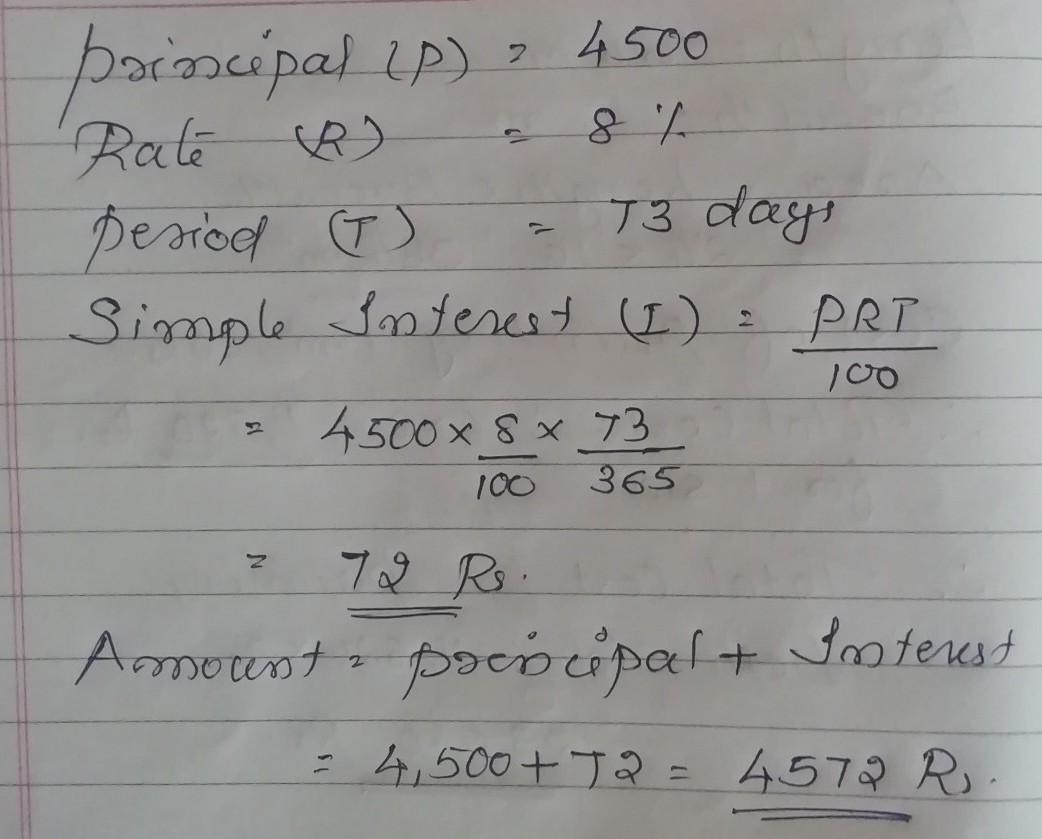 Principal (P) = 4500
Rate (R) = 8 %
Period (T) = 73 days
Simple Interest (I) = PRT/100
= 4500 × 8/100 × 73/365
= 72 Rs.
Amount = principal + Interest
= 4,500 + 72 = 4572 Rs.